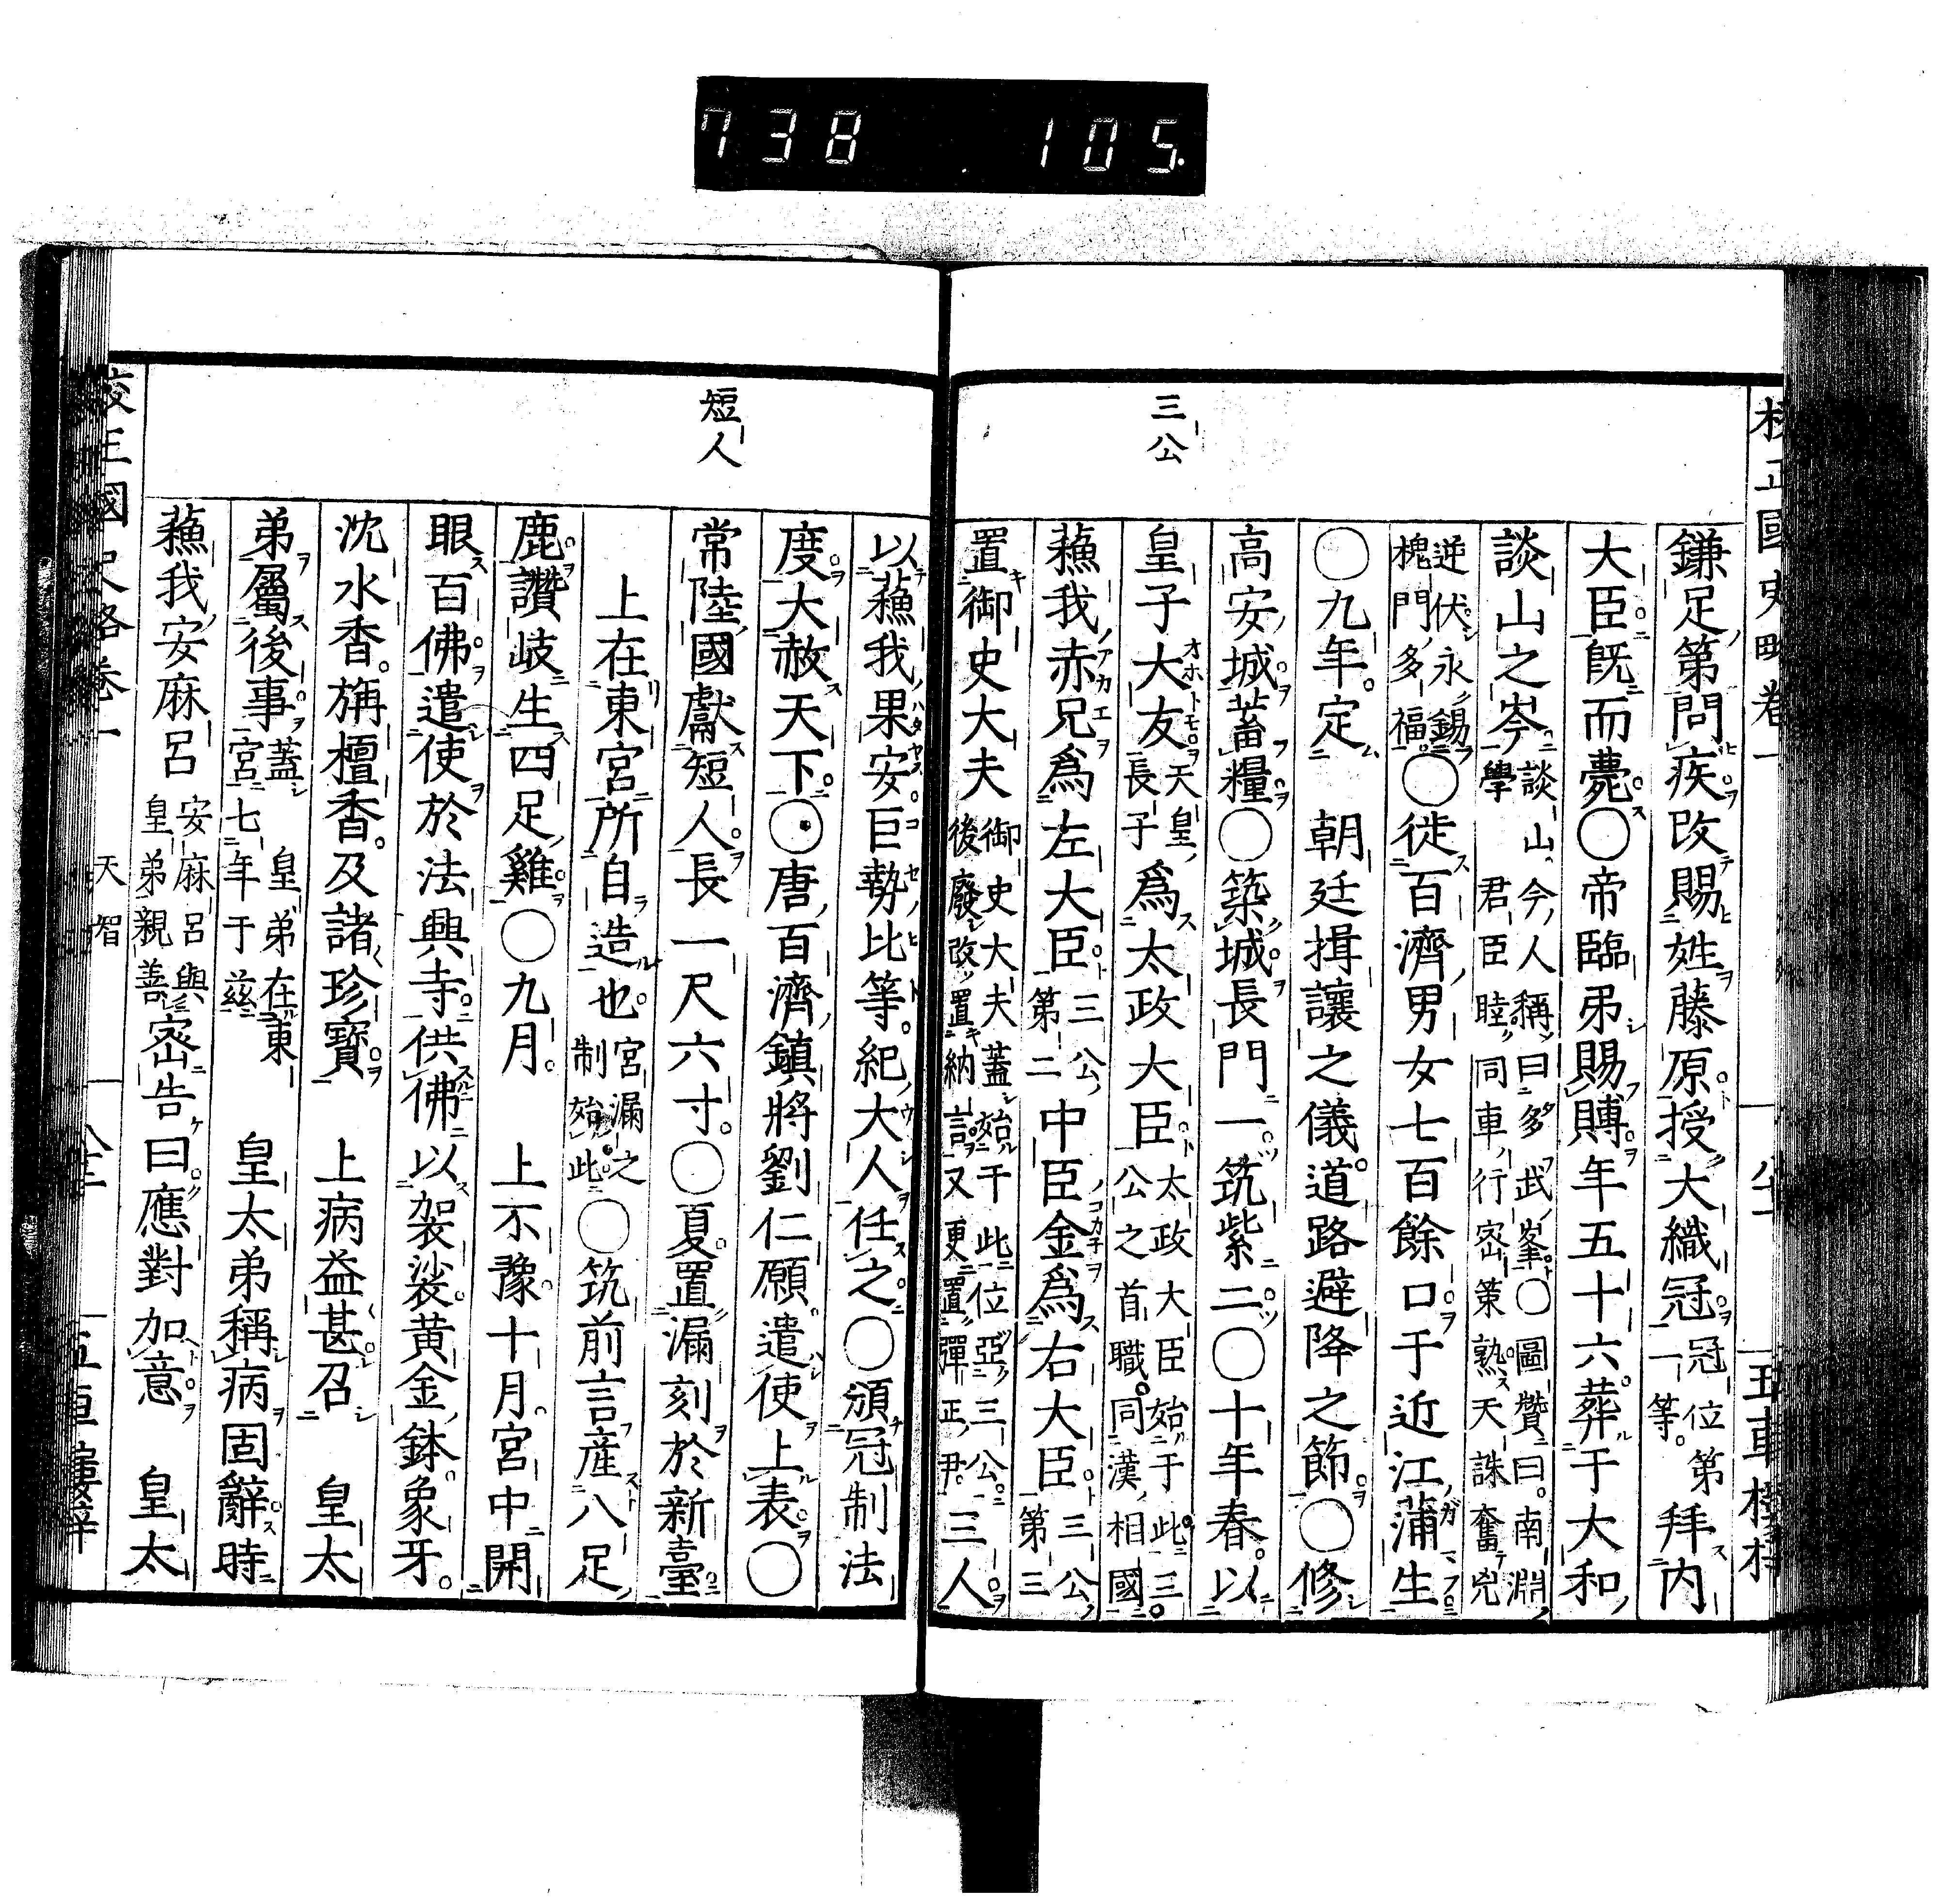 738 105
三公
鎌足第問疾改賜姓藤原授大織冠冠位第一等。拜内
大臣既而薨〇帝臨弔賜賻年五十六葬于大和
談山之岑談山今人稱曰多武峯〇圖贊曰南淵學君臣睦同車行密策熟天誅奮兇
逆伏永錫槐門多福〇徙百濟男女七百餘口于近江蒲生
〇九年定 朝廷揖讓之儀道路避降之節〇修
高安城蓄糧〇築城長門一筑紫二〇十年春以
皇子大友天皇長子爲太政大臣太政大臣始于此三公之首職同漢相國
蘓我赤兄爲左大臣三公第二中臣金爲右大臣三公第三
置御史大夫御史大夫蓋始于此位亞三公後廢改置納言又更置彈正尹三人
短人
以蘓我果安巨勢比等紀大人任之〇頒冠制法
度大赦天下〇唐百濟鎮將劉仁願遣使上表〇
常陸國獻短人長一尺六寸〇夏置漏刻於新臺
上在東宮所自造也宮漏之制始此〇筑前言産八足
鹿讃岐生四足雞〇九月 上不豫十月宮中開
眼百佛遣使於法興寺供佛以袈裟黄金鉢象牙
沈水香旃檀香及諸珍寶 上病益甚召 皇太
弟屬後事蓋 皇弟在東宮七年于茲 皇太弟稱病固辭時
蘓我安麻呂安麻呂與皇弟親善密告曰應對加意 皇太
天智